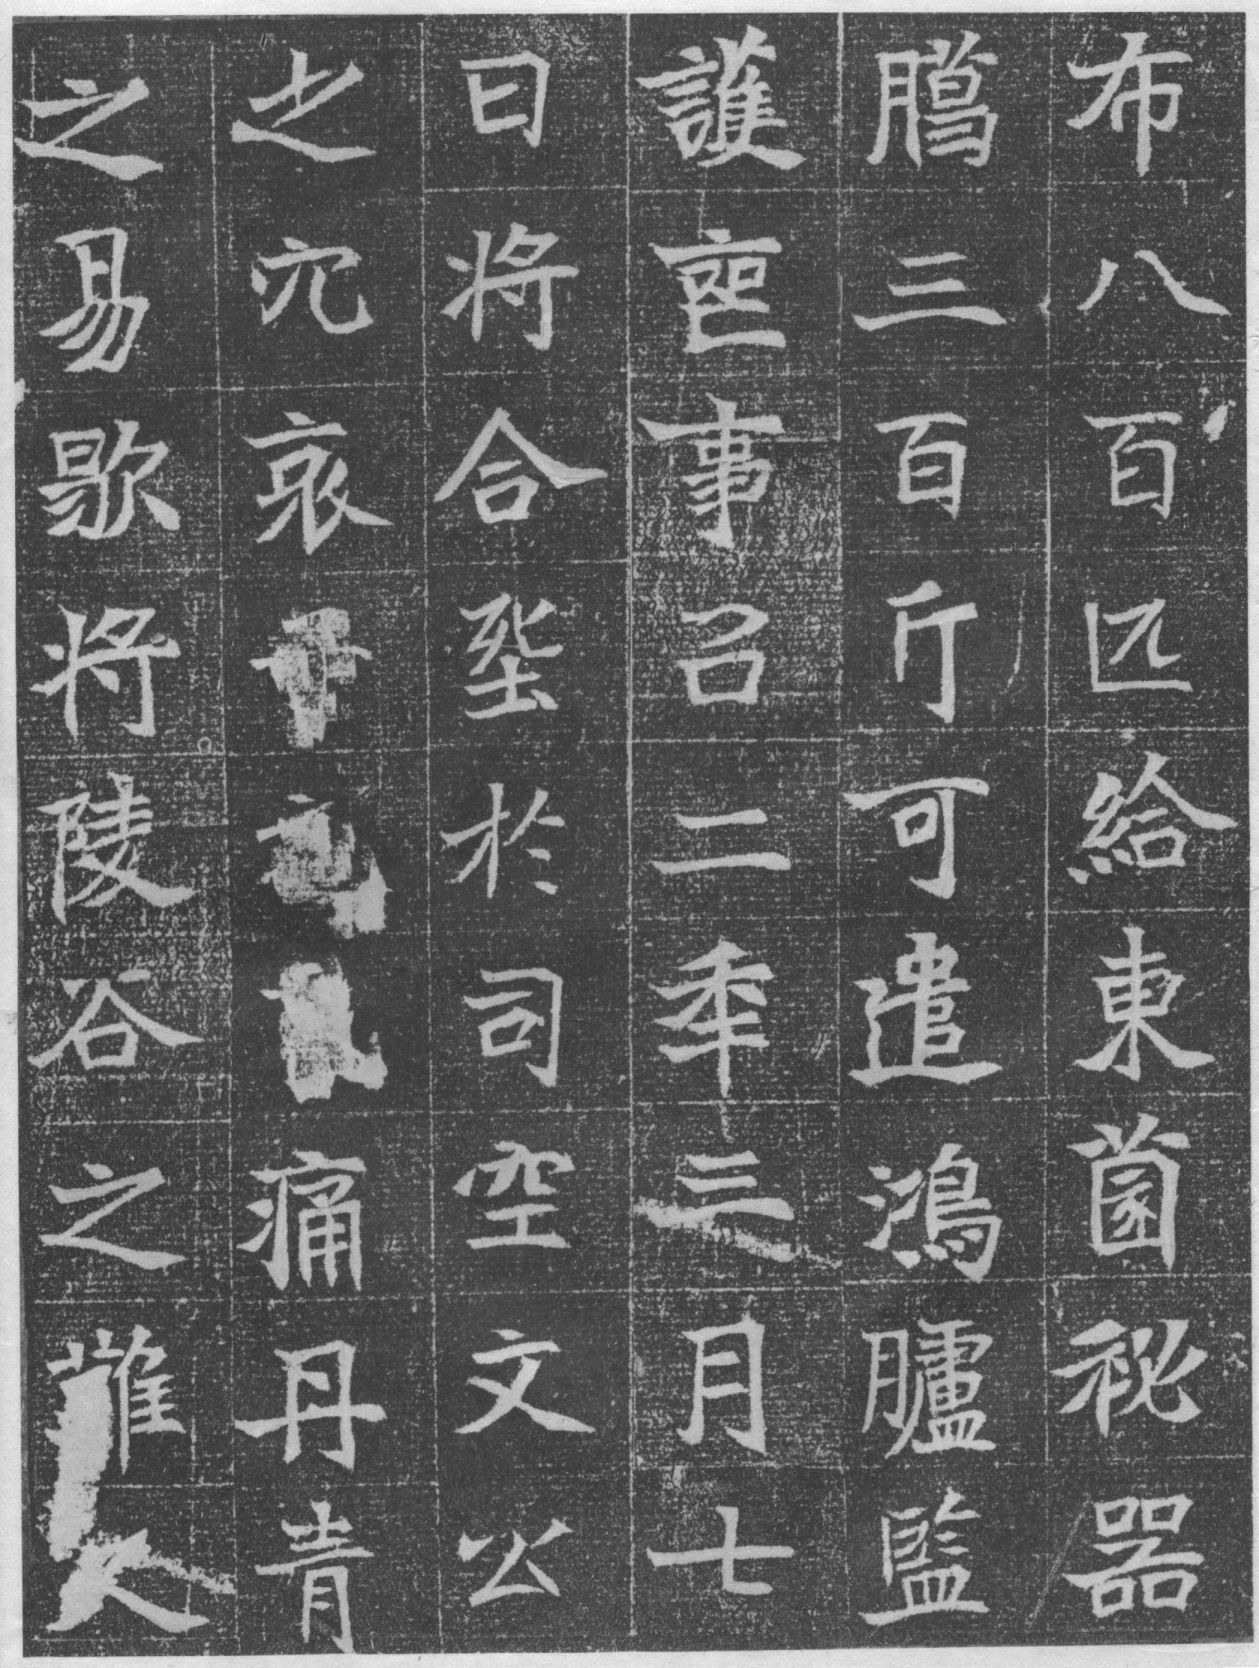 布八百匹給東園祕器
臈三百斤可遣鴻臚監
護喪事以二年三月七
日將合葬於司空文公
之穴哀
痛丹青
之易歇將陵谷之難久